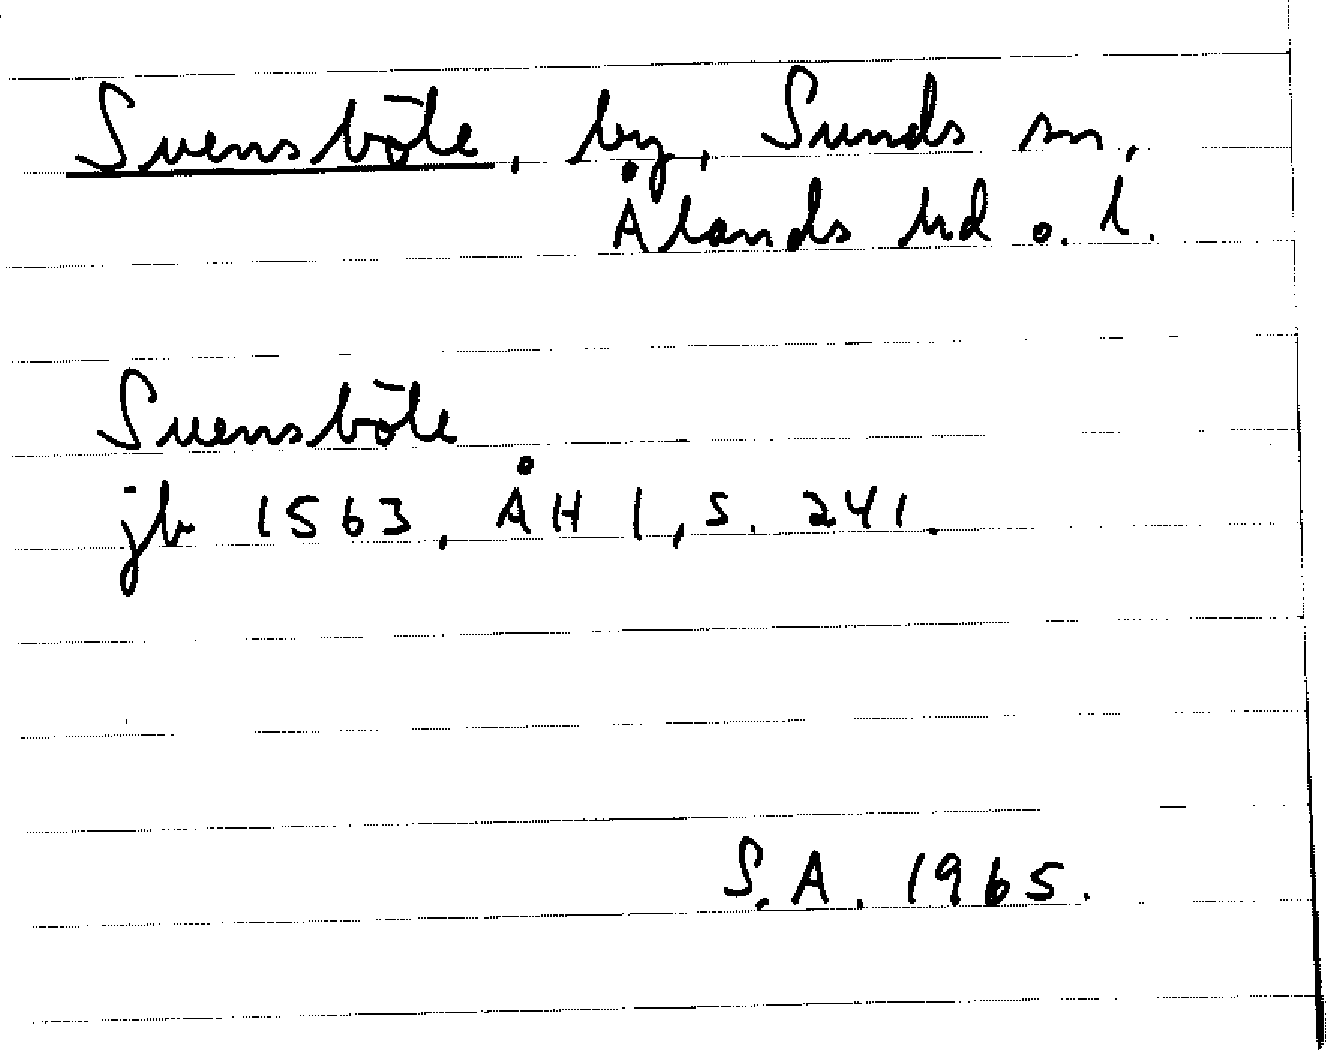 Svensböle, by, Sunds sn,
Ålands hd o. l.
Suensböle
jb 1563, ÅH 1, s. 241.
S.A. 1965.